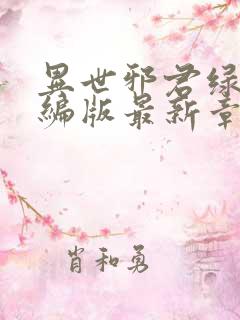 異世邪君绿
编版最新章
肖和勇